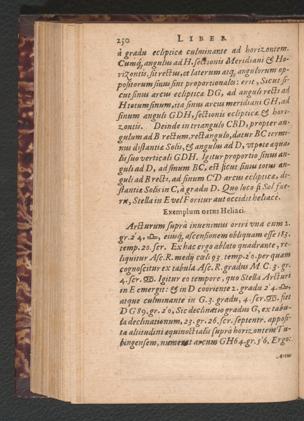 250 LIBER
à gradu eclipticæ culminante ad horizontem.
Cumq́; angulus ad H. sectionis Meridiani & Ho-
rizontis, sit rectus, et laterum atq; angulorum op-
positorum sinus sint proportionales: erit, Sicut si-
nus sinus arcus eclipticæ DG, ad anguli recti ad
H totum sinum, ita sinus arcus meridiani GH, ad
sinum anguli GDH, sectionis eclipticæ & hori-
zontis. Deinde in triangulo CBD, propter an-
gulum ad B rectum, rectangulo, datur BC termi-
nus distantiæ Solis, & angulus ad D, utpote æqua-
lis suo verticali GDH. Igitur proportio sinus an-
guli ad D, ad sinum BC, est sicut sinus totus an-
guli ad B recti, ad sinum CD arcus eclipticæ, di-
stantiæ Solis in C, à gradu D. Quo loco si Sol fue-
rit, Stella in E vel F oritur aut occidit heliacè.
Exemplum ortus Heliaci.
Arcturum suprà inuenimus oriri vna cum 2.
gr. 24. ♎, eiusq́; ascensionem obliquam esse 183.
temp. 20. scr. Ex hac ergo ablato quadrante, re-
liquitur Asc. R. medij cœli 93. temp. 20. per quam
cognoscitur ex tabula Asc. R. gradus M. C. 3. gr.
4. scr. ♋. Igitur eo tempore, quo Stella Arcturi
in E emergit: & in D cooritur 2. gradu 24. ♎,
atque culminante in G. 3. gradu, 4. scr. ♋. fiet
DG 89. gr. 20. Sic declinatio gradus G, ex tabu-
la declinationum, 23. gr. 26. scr. septentr. apposi-
ta altitudini æquinoctialis suprà horizontem Tu-
bingensem, numerat arcum GH 64. gr. 56. Ergo: